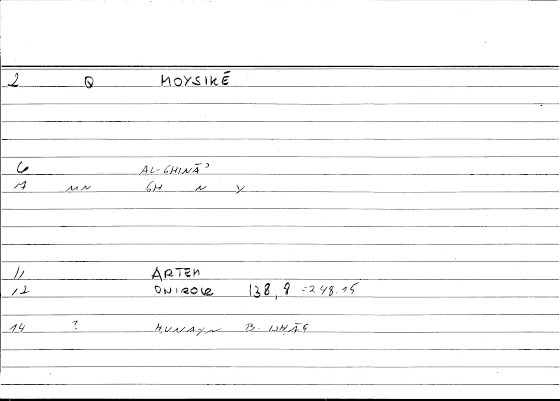 2 Q MOYSIKĒ
6 AL-GHINĀʾ
7 MN GH N Y
11 ARTEM
12 ONIROCR 138,8 = 248.15
14 ? ḤUNAYN B. ISḤĀQ